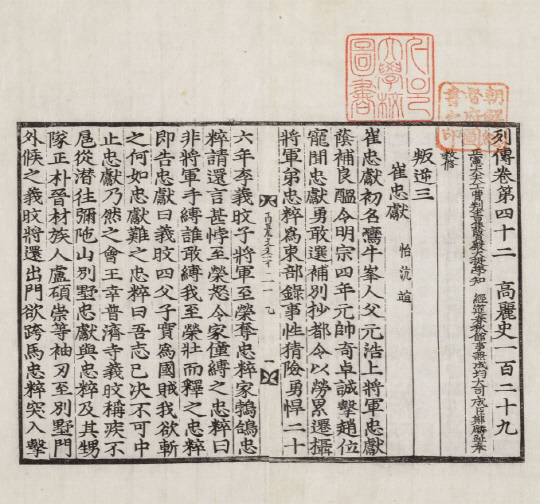 朝鮮總督府圖書之印
列傳卷第四十二 高麗史一百二十九
正憲大夫工曹判書集賢殿大提學知 經筵春秋館事兼成均大司成臣鄭麟趾奉
教修
叛逆三
崔忠獻 怡 沆 竩
崔忠獻初名鸞牛峯人父元浩上將軍忠獻
蔭補良醞令明宗四年元帥奇卓誠擊趙位
寵聞忠獻勇敢選補別抄都令以勞累遷攝
將軍弟忠粹爲東部錄事性猜險勇悍二十
六年李義旼子將軍至榮奪忠粹家鵓鴿忠
粹請還言甚悖至榮怒令家僮縛之忠粹曰
非將軍手縛誰敢縛我至榮壯而釋之忠粹
即告忠獻曰義旼四父子實爲國賊我欲斬
之何如忠獻難之忠粹曰吾志已決不可中
止忠獻乃然之會王幸普濟寺義旼稱疾不
扈從潛往彌陁山別墅忠獻與忠粹及其甥
隊正朴晉材族人盧碩崇等袖刃至別墅門
外候之義旼將還出門欲跨馬忠粹突入擊